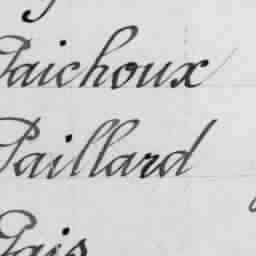 Paichoux
Paillard
Pais